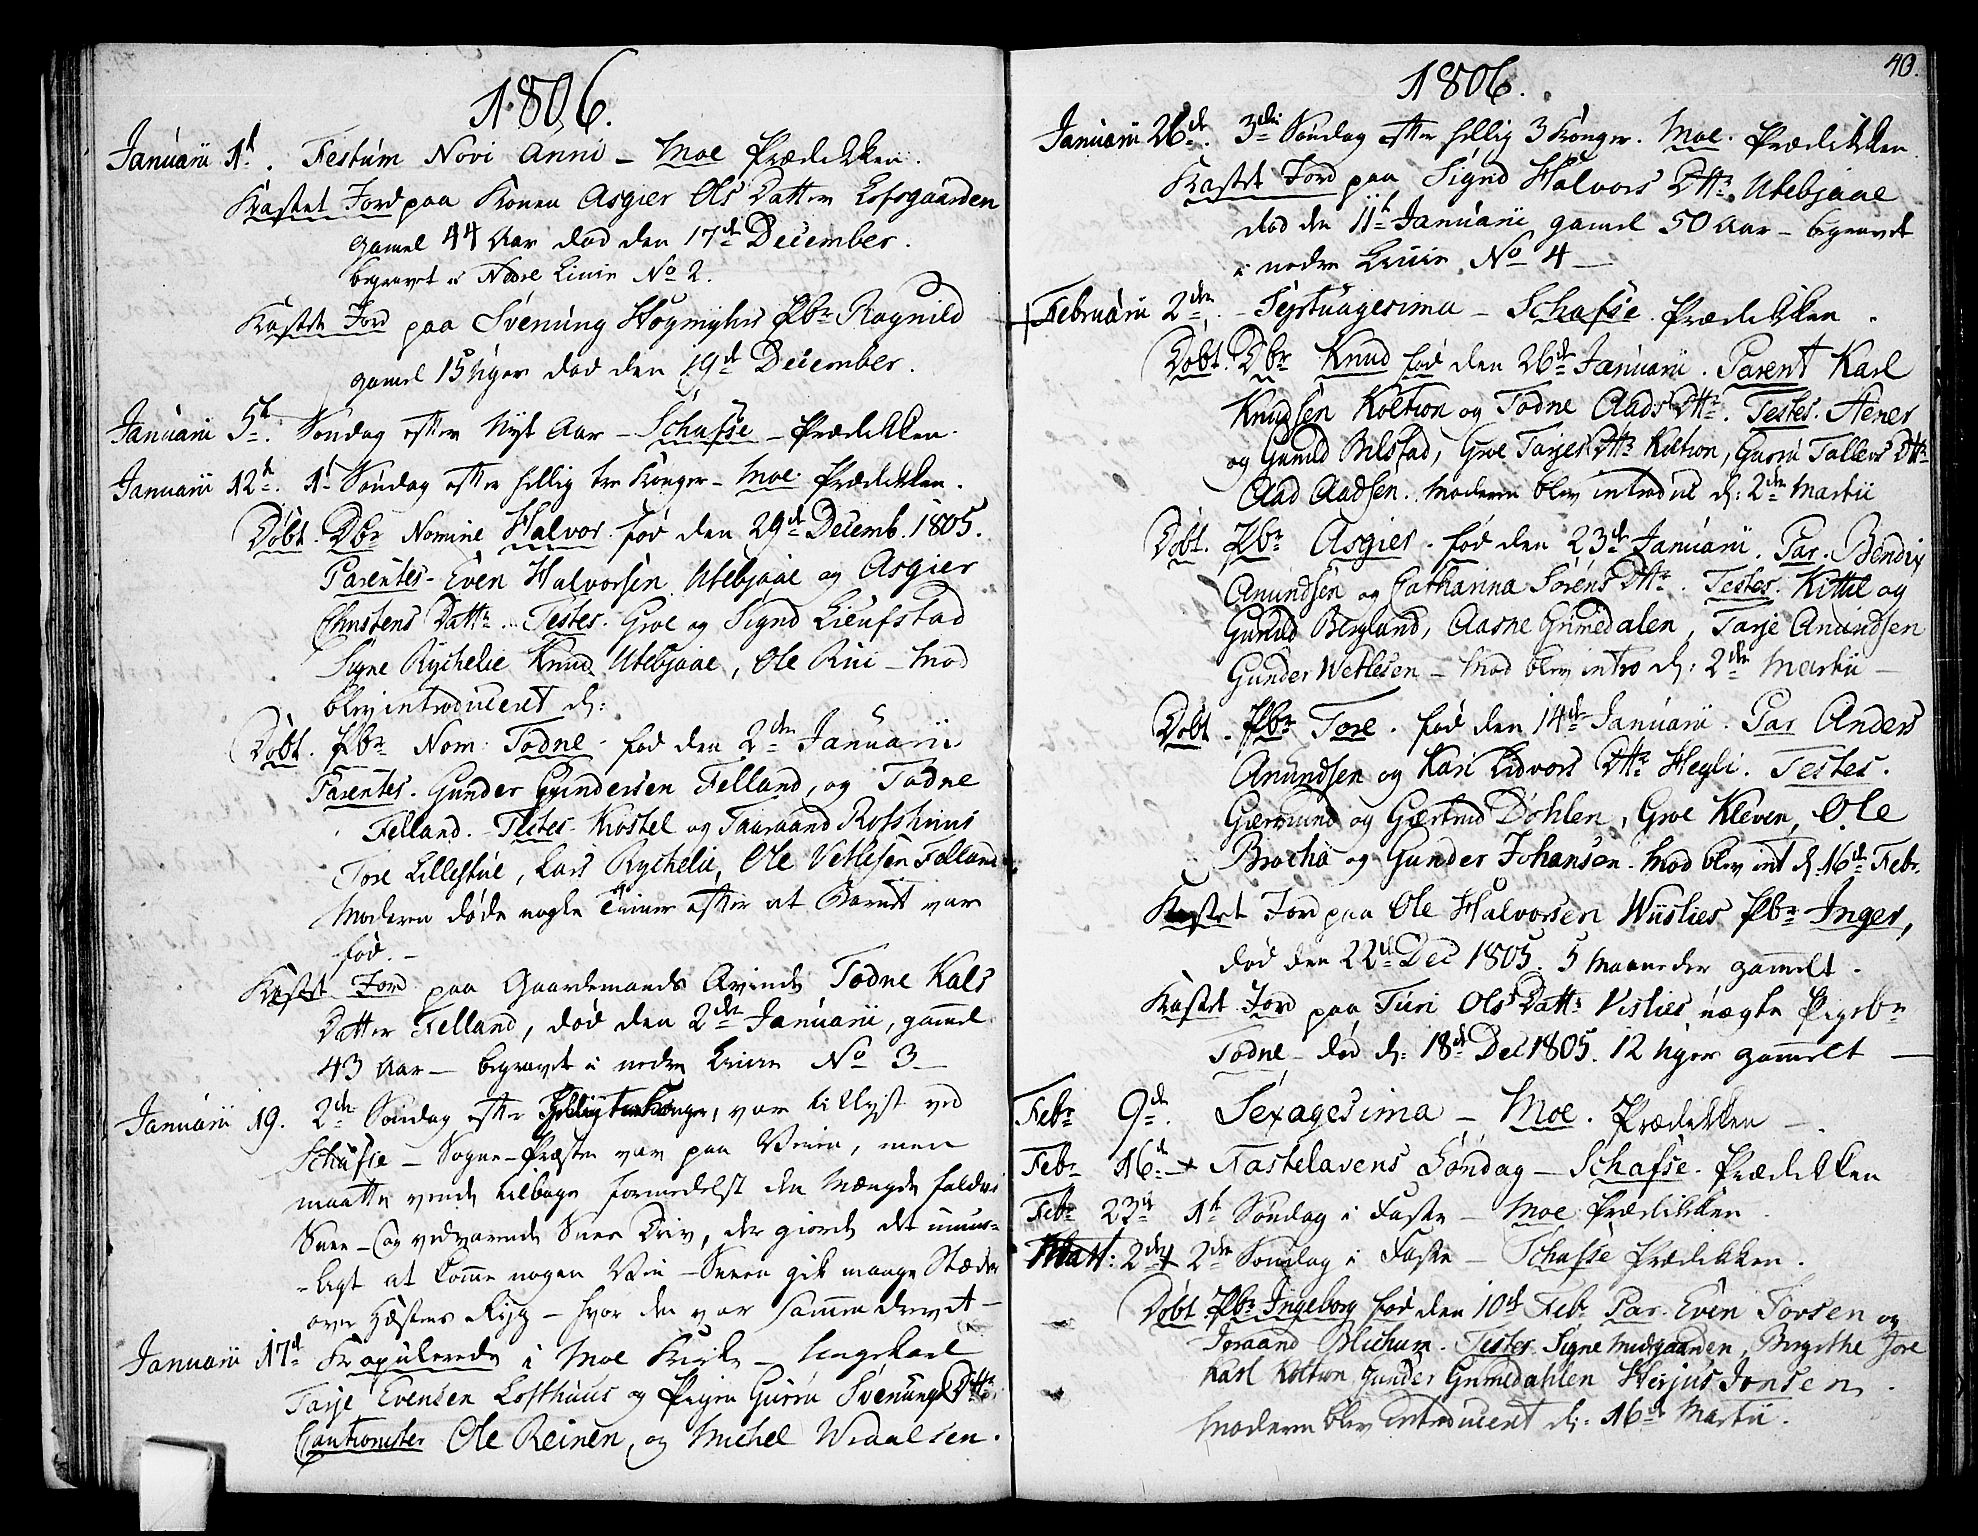 1806.
Januarii 1t. Festum Novi Anni - Moe Prædikken.
Kastet Jord paa Konen Asgier Ols Datter Lofsgaarden
gamel 44 Aar død den 17de December.
begravet i Nedre Linie No 2.
Kastet Jord paa Svenung Høgmyhrs Pbr Ragnild
gamel 15 Uger død den 19de December.
Januarii 5t. Søndag efter Nyt Aar - Schafse - Prædikken.
Januarii 12te. 1t Søndag efter hellig tre Konger - Moe Prædikken.
Døbt. Dbr Nomine Halvor. fød den 29de Decemb. 1805.
Parentes - Even Halvorsen Utebjaae og Asgier
Christens Dattr. Testes. Groe og Signd Lieufstad
Signe Rychelie Knud Utebjaae, Ole Rui - Mod
blev introduceret d:
Døbt. Pbr Nom: Todne fød den 2den Januarii
Parentes. Gunder Gundersen Felland, og Todne
Felland. - Testes - Kostel og Taaraand Rofshuus
Tore Lillestue, Lars Rychelie, Ole Vetlesen Felland
Moderen døde nogle Timer efter at Barnet var
fød. -
Kastet Jord paa Gaardemands Qvinde Todne Kals
Datter Felland, død den 2den Januarii, gamel
43 Aar - begravet i nedre Linie No 3 -
Januarii 19. 2den Søndag efter Hellig tre Konger, var tillyst ved
Schafse - Sogne-Præsten var paa Veien, men
maatte vende tilbage formedelst den Mængde faldne
Snee - og vedvarende Snee Driv, der giorde det umue-
-ligt at komme nogen Vei - Sneen gik mange Stæder
over Hæstens Ryg - hvor den var sammendrevet -
Januarii 17de Kopulerede i Moe Kirke - Ungekarl
Tarje Evensen Lofthuus og Pigen Gurru Svenungs Dttr
Cautionister Ole Reinen, og Michel Wraalsen.
40.
1806.
Januarii 26de. 3die Søndag efter hellig 3 Konger. Moe. Prædikken
Kastet Jord paa Signd Halvors Dttr. Utebjaae
død den 11te Januarii gamel 50 Aar - begravet
i nedre Linie No 4 -
Februarii 2den. - Septuagesima - Schafse Prædikken.
Døbt. Dbr Knud fød den 26de Januarii. Parent Karl
Knudsen Koltion og Todne Aads Dttr. Testes. Stener
og Gunild Bilstad, Groe Tarjes Dttr Koltion, Gurru Tallevs Dttr
Aad Aadsen. Moderen blev introduc d: 2den Martii
Døbt. Pbr Asgier. fød den 23de Januarii. Par. Bendix
Anundsen og Catharina Sørens Dttr. Testes. Kittil og
Gunild Bergland, Aasne Grimedalen, Tarje Anundsen
Gunder Wetlesen - Mod blev intro d: 2den Martii -
Døbt. Pbr Tore. fød den 14de Januarii. Par Anders
Anundsen og Kari Eidvors Dttr Heyli. Testes.
Giermund og Giertrud Dohlen, Groe Kleven, Ole
Brochø og Gunder Johansen. Mod blev int d. 16de Febr.
Kastet Jord paa Ole Halvorsen Wiislies Pbr Inger,
død den 22de Dec 1805. 5 Maaneder gammelt.
Kastet Jord paa Turi Ols Dattr Vislies uægte Pigebr
Todne - død d: 18de Dec 1805. 12 Uger gammelt -
Febr 9de. Sexagesima - Moe. Prædikken -.
Febr 16de. Fastelavens Søndag - Schafse. Prædikken
Febr 23de 1te Søndag i Faste - Moe Prædikken.
Mart: 2den 2den Søndag i Faste - Schafse Prædikken.
Døbt Pbr Ingeborg fød den 10de Febr Par. Even Torsen og
Joraand Blichum. Testes. Signe Midgaarden, Birgithe Jore
Karl Koltion Gunder Grimedahlen Herjus Jonsen.
Moderen blev introducert d: 16de Martii.